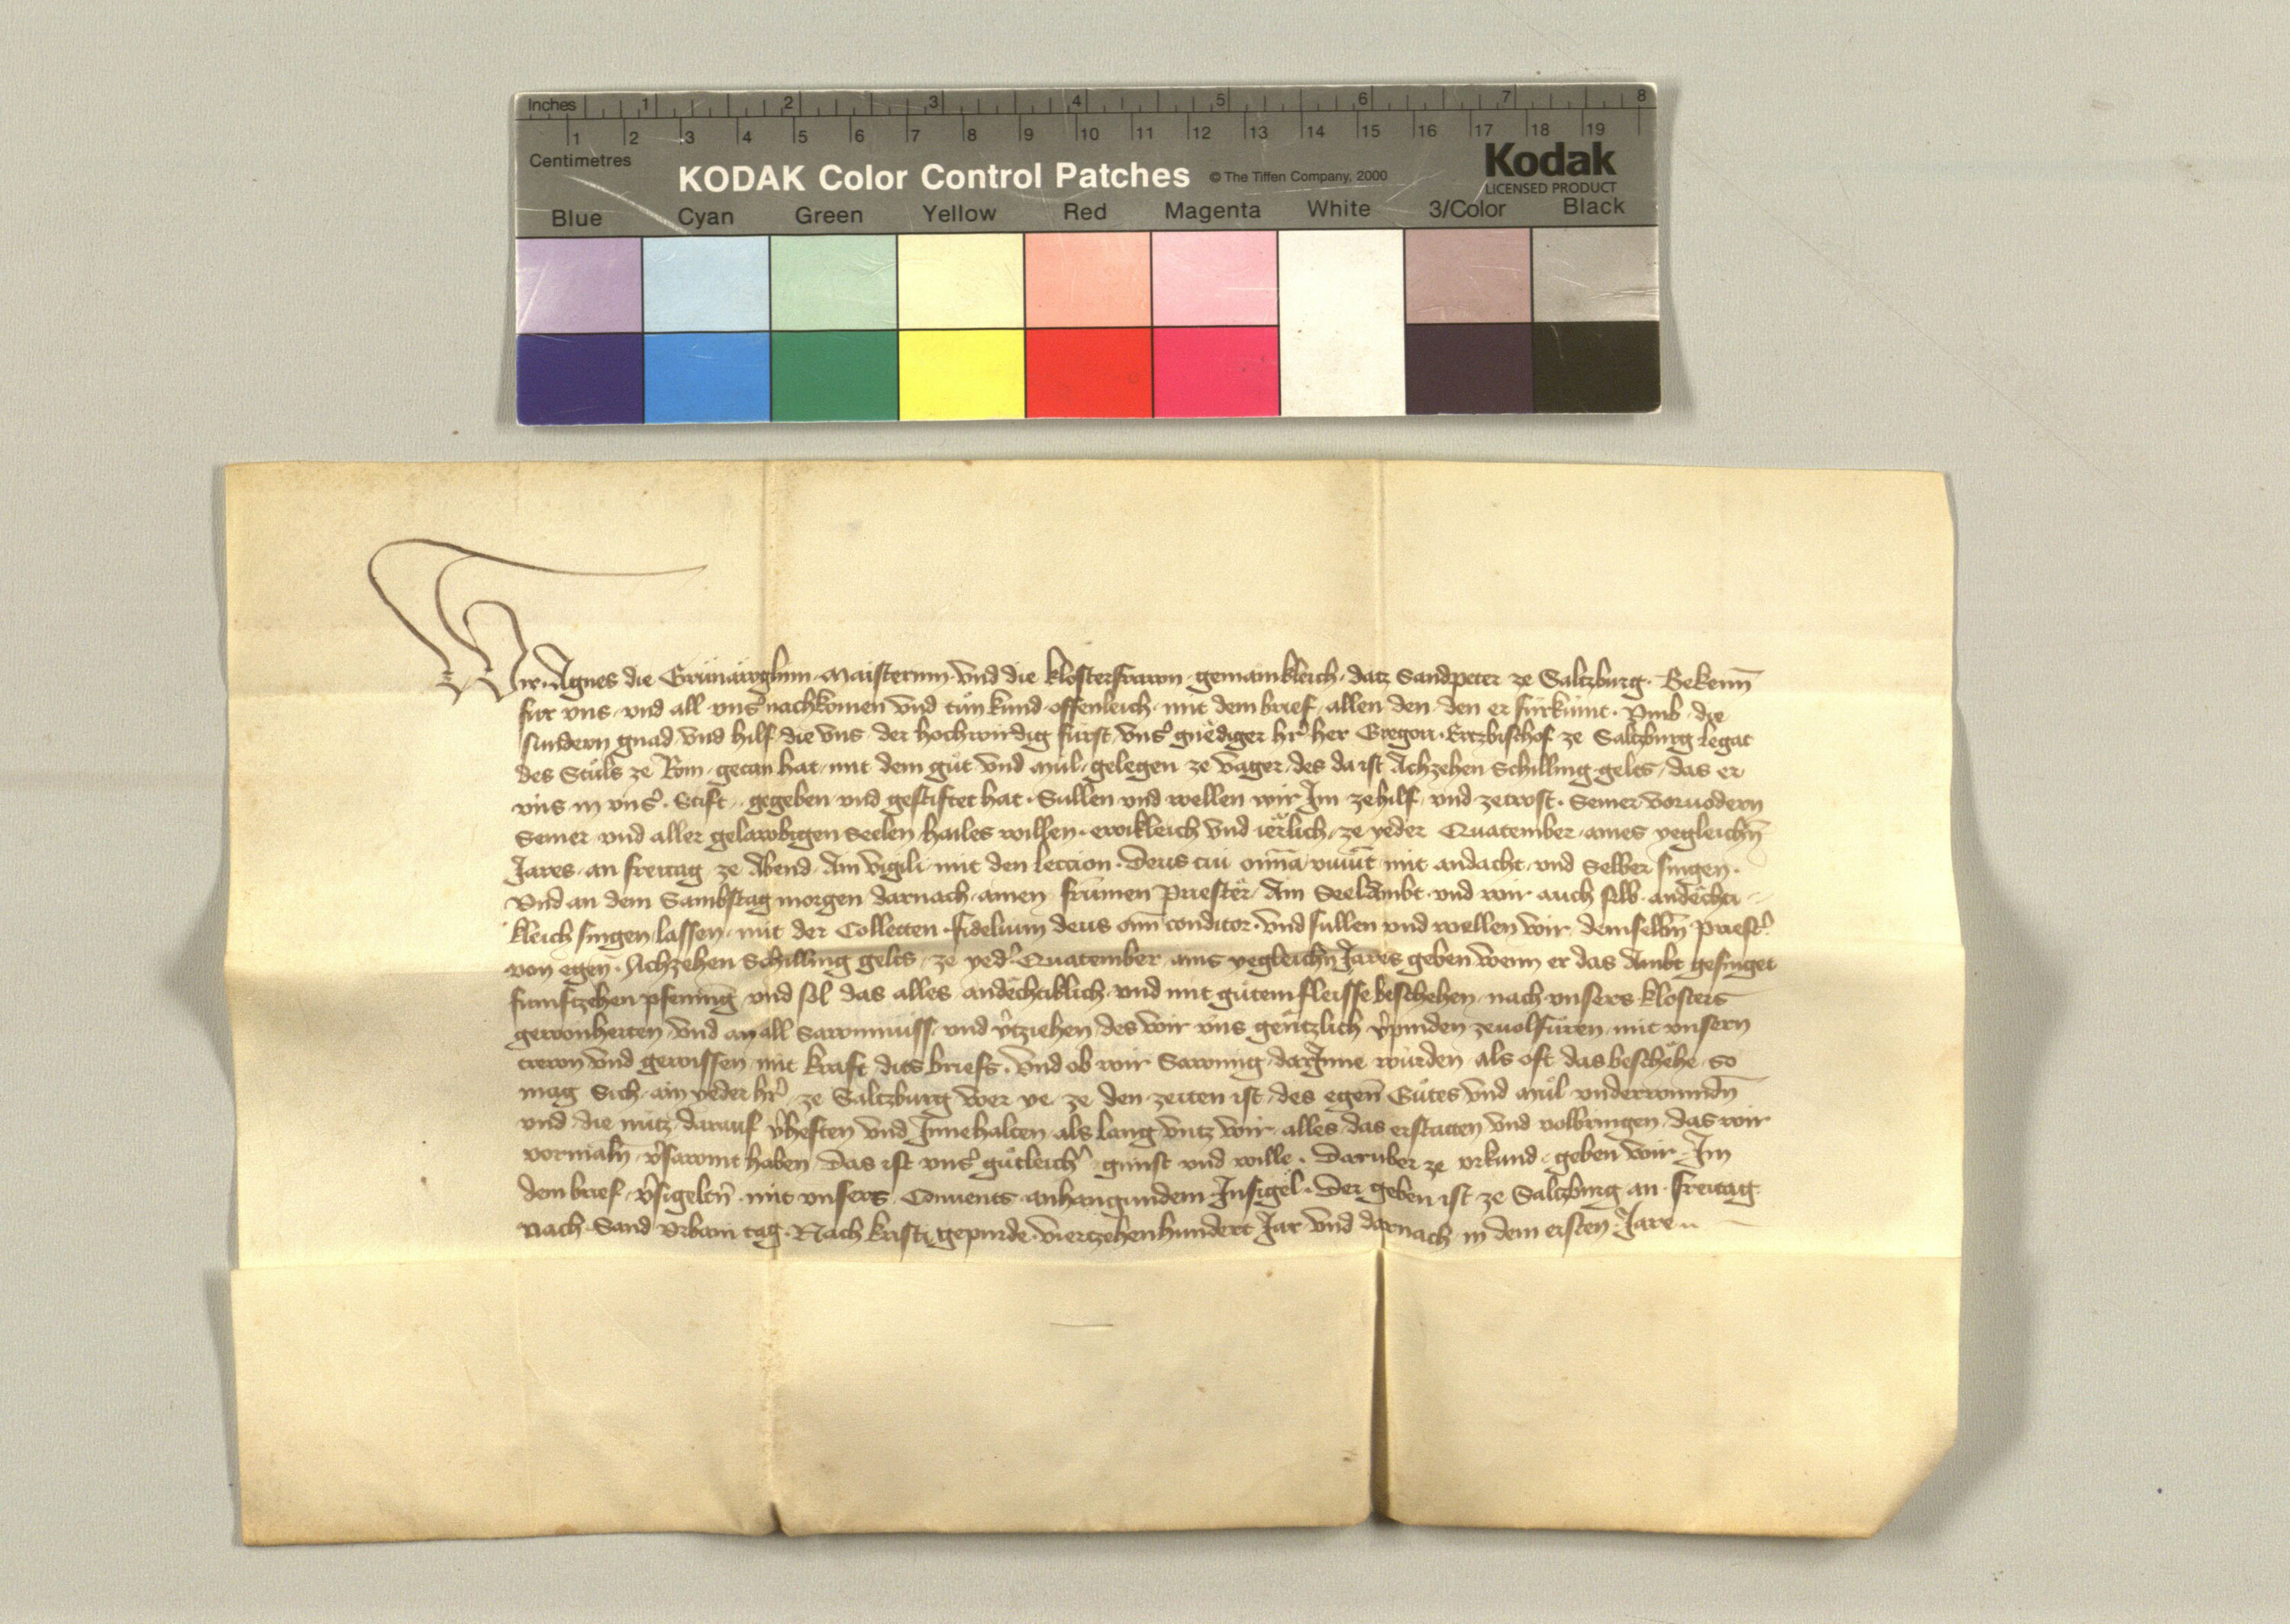 Inches 1 2 3 4 5 6 7 8
1 2 3 4 5 6 7 8 9 10 11 12 13 14 15 16 17 18 19
Centimetres
KODAK Color Control Patches © The Tiffen Company, 2000
Kodak
LICENSED PRODUCT
Blue Cyan Green Yellow Red Magenta White 3/Color Black
Wir Agnes die Maisterinn vnd die klosterfrawn gemainkleich datz Sandpeter ze Saltzburg Bekenn̄
für vns vnd all vns̾ nachkomen vnd tůn kund offenleich mit dem brief allen den den er fürkümt Vmb die
sundern gnad vnd hilf die vns der hochwirdig fürst vns̾ gnëdiger hr̾ her Gregori Ertzbischof ze Saltzburg legat
des Stůls ze Rom getan hat mit dem gůt vnd mül gelegen ze vager des da ist Achzehen Schilling gelts das er
vns in vns̾ Stift gegeben vnd gestiftet hat Sullen vnd wellen wir Im zehilf vnd zetrost Seiner voruodern
Seiner vnd aller gelawbigen Seelen hailes willen ewikleich vnd iërlich ze yeder Quatember aines yegleichn̄
Jares an freitag ze Abend Ain vigili mit den leccion Deus cui om̄ia viuūt mit andacht vnd Selber singen
Vnd an dem Sambstag morgen darnach ainen frümen Priestër Ain Seelambt vnd wir auch selb andëchti
kleich singen lassen mit der Collecten fidelium deus om̄ conditor vnd sullen vnd wellen wir demselbn̄ priest̾
von egen̄ Achzehen Schilling gelts ze yed̾ Quatember ains yegleichn̄ Jares geben wenn er das Ambt gesinget
fumftzehen pfening vnd sol das alles andëchtiklich vnd mit gůtem fleisse beschehen nach vnsers klosters
gewonheiten vnd an all Sawmnuss vnd v̾tziehen des wir vns gëntzlich v̾pinden zeuolfüren mit vnsern
trewn vnd gewissen mit kraft dits briefs Vnd ob wir Sawmig darInne würden als oft das beschëhe so
mag Sich ain yeder hr̾ ze Saltzburg wer ye ze den zeiten ist des egen̄ Gůtes vnd mül vnderwindn̄
vnd die nütz darauf v̾heften vnd Innehalten als lang vntz wir alles das erstatten vnd volbringen das wir
vormaln̄ v̾sawmt haben Das ist vns̾ gůtleich̾ gunst vnd wille Darüber ze vrkund geben wir Im
dem brief v̾sigeltn̄ mit vnsers Conuents anhangundem Insigël Der geben ist ze Saltzburg an freitag
nach Sand Vrbani tag Nach kristi gepurde viertzehenhundert Jar vnd darnach in dem ersten Jare